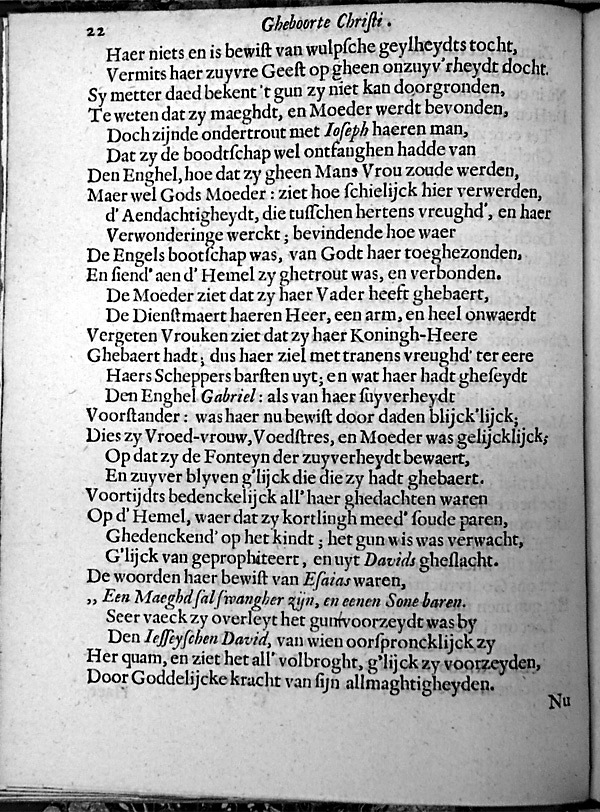 22 Gheboorte Christi.
Haer niets en is bewist van wulpsche geylheydts tocht,
Vermits haer zuyvre Geest op gheen onzuyv'rheydt docht.
Sy metter daed bekent 't gun zy niet kan doorgronden,
Te weten dat zy maeghdt, en Moeder werdt bevonden,
Doch zijnde ondertrout met Ioseph haeren man,
Dat zy de boodtschap wel ontfanghen hadde van
Den Enghel, hoe dat zy gheen Mans Vrou zoude werden,
Maer wel Gods Moeder: ziet hoe schielijck hier verwerden,
d' Aendachtigheydt, die tusschen hertens vreughd', en haer
Verwonderinge werckt; bevindende hoe waer
De Engels bootschap was, van Godt haer toeghezonden,
En siend' aen d' Hemel zy ghetrout was, en verbonden.
De Moeder ziet dat zy haer Vader heeft ghebaert,
De Dienstmaert haeren Heer, een arm, en heel onwaerdt
Vergeten Vrouken ziet dat zy haer Koningh-Heere
Ghebaert hadt; dus haer ziel met tranens vreughd' ter eere
Haers Scheppers barsten uyt; en wat haer hadt gheseydt
Den Enghel Gabriel: als van haer suyverheydt
Voorstander: was haer nu bewist door daden blijck'lijck;
Dies zy Vroed-vrouw, Voedstres, en Moeder was gelijcklijck;
Op dat zy de Fonteyn der zuyverheydt bewaert,
En zuyver blyven g'lijck die die zy hadt ghebaert.
Voortijdts bedenckelijck all' haer ghedachten waren
Op d' Hemel, waer dat zy kortlingh meed' soude paren,
Ghedenckend' op het kindt; het gun wis was verwacht,
G'lijck van geprophiteert, en uyt Davids gheslacht.
De woorden haer bewist van Esaias waren,
„ Een Maeghd sal swangher zijn, en eenen Sone baren.
Seer vaeck zy overleyt het gun voorzeydt was by
Den Iesseyschen David, van wien oorsproncklijck zy
Her quam, en ziet het all' volbroght, g'lijck zy voorzeyden,
Door Goddelijcke kracht van sijn allmaghtigheyden.
Nu